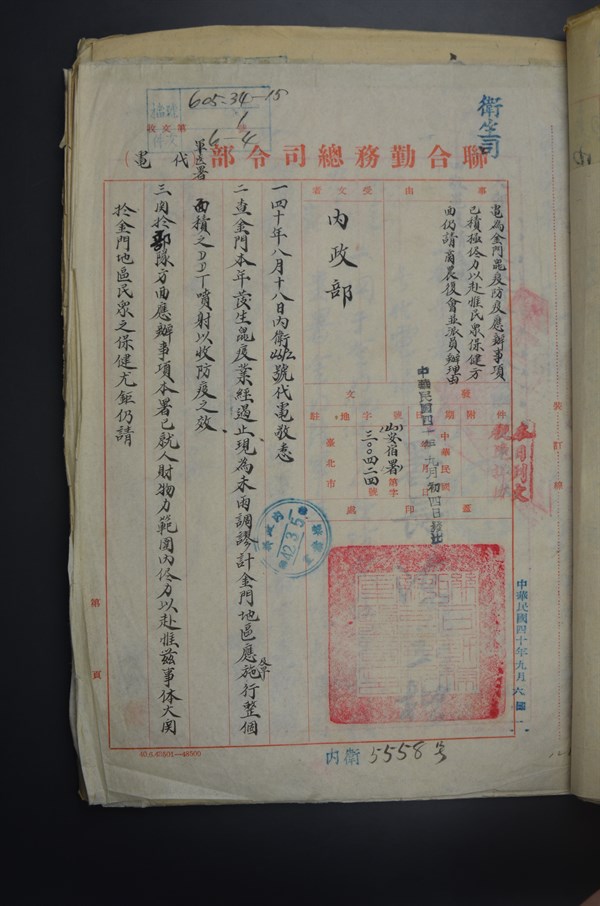 605-34-15
1
6 4
衛生司
聯合勤務總司令部
軍医署
代電
事由
電為金門鼠疫防疫應辦事項
已積極佟力以赴惟民眾保健方
面仍請商農復會並派員辦理由
受文者
內政部
中華民國
臺北市
第字
三〇〇四二四
號
中華民國四十年九月六
一四十年八月十八日內衛
號代電敬悉
二查金門本年發生鼠疫業經遏止現為未雨調謬計金門地區應及早施行整個
面積之DDT噴射以收防疫之效
三関於部隊方面應辦事項本署已就人財物力範圍內佟力以赴惟茲事体大関
於金門地區民眾之保健尤鉅仍請
第 頁
裝訂線
內衛5558